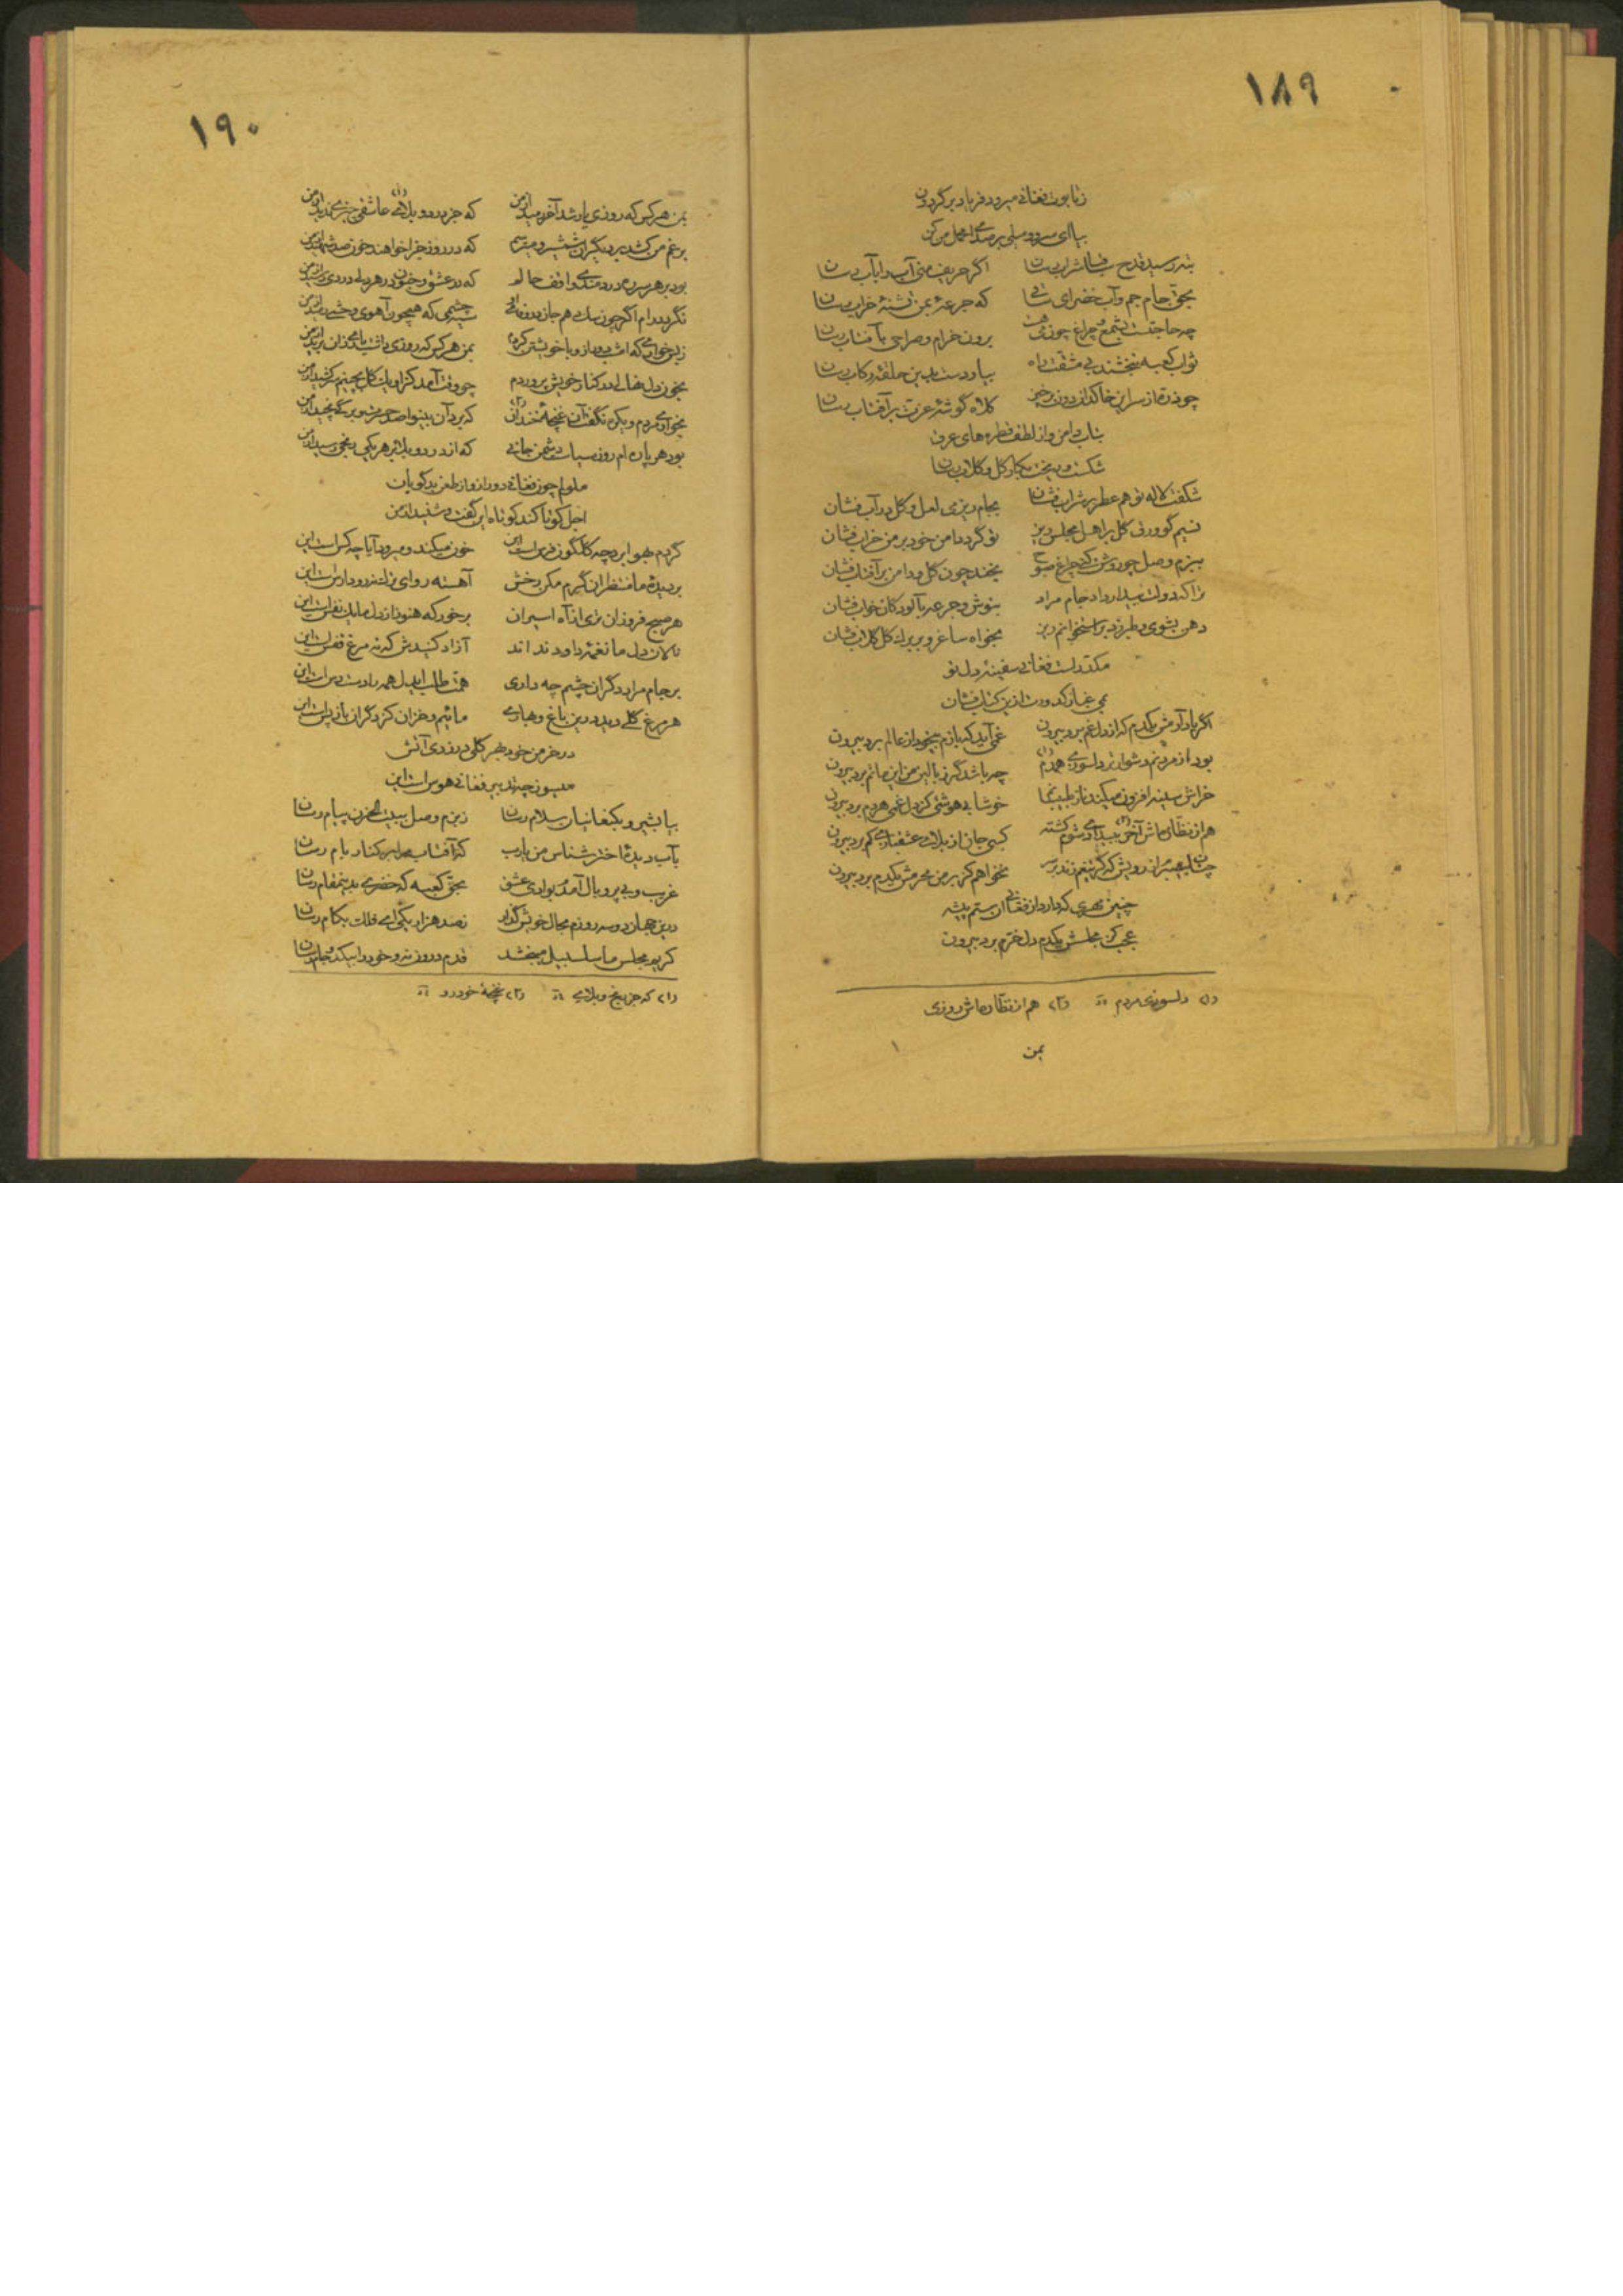 ١٨٩
ز تابوت فغانی میرود فریاد بر گردون
بیا ای سرو و میلی بر صدای محمل من کن
بته رسید قدح ساقیا شراب رسان اگر حریف منی آب را بآب رسان
بحق جام جم و آب خضر ای ساقی که جرعهٔ بمن تشنهٔ خراب رسان
چه حاجتست بشمع و چراغ چون مه من برون خرام و صراحی بآفتاب رسان
ثواب کعبه نبخشند بی مشقت راه بیا و دست بدین حلقهٔ رکاب رسان
چو ذره از سر این خاکدان دون برخیز کلاه گوشهٔ عزت بر آفتاب رسان
بتاب دامن و از لطف قطره‌های عرق
شکست و ریخت بکار گل و گلاب رسان
شکفت لاله تو هم عطر بر شراب فشان بجام ریز می لعل و گل در آب فشان
نسیم گو ورق گل بر اهل مجلس ریز تو گرد دامن خود بر من خراب فشان
ببزم وصل چو روشن کنی چراغ صبوح بخند چون گل و دامن بر آفتاب فشان
ترا که دولت بیدار داد جام مراد بنوش و جرعه بآلودگان خواب فشان
دهن بشوی و طبرزد بر استخوانم ریز بخواه ساغر و بر برگ گل گلاب فشان
مکدرست فغانی سفینهٔ دل تو
می غبار کدورت ازین کتاب فشان
اگر یاد آورمش یکدم که از دل غم برد بیرون غمی آید که بازم بیخود از عالم برد بیرون
بود از مردنم دشوارتر دلسوزی همدم(۱) چه باشد گر ز بالین من این ماتم برد بیرون
خراش سینه افزون میکند ناز طبیبانم خوشا بیهوشئی کز دل غم مرهم برد بیرون
هم از نظاره‌اش آخر(۲) ببیدادی شوم کشته کسی جان از بلای عشقبازی کم برد بیرون
نخواهم کز بر من محرمش یکدم برد بیرون
چنین مهری که دارد از فغانی آن ستم پیشه
عجب کز مجلسش یکدم دل خرم برد بیرون
(۱) دلسوزی مردم (۲) هم از نظاره‌اش روزی
بمن
١٩٠
بمن هر کس که روزی یار شد آخر برید از من که جز درد و بلای(۱) عاشقی چیزی ندید از من
برغم من کشد بر دیگران شمشیر و میترسم که در روز جزا خواهند خون صد شهید از من
بود بر هر سر ره دردمندی واقف حالم که در عشق و جنون در هر دلی دردی رسید از من
نگردد رام اگر چون سگ دهم جان در وفای او سیه چشمی که همچون آهوی وحشی رمید از من
بمن هر کس که روزی داشت پای کم زان برید از من
بخون دل نهالی در کنار خویش پروردم چو وقت آمد کزو یک گل بچینم سر کشید از من
بخواری مردم و یکره نگفت آن غنچهٔ خندان(۲) که بر د آن بینوا صد خرمن و برگی نچید از من
بود هر پاره‌ام روز سیاست دشمن جانی که از درد و بلا بر هر یکی رنجی رسید از من
ملولم چون فغانی دور ازو از طعن بدگویان
اجل گو تا کند کوتاه این گفت و شنید از من
گرم جهو این چه گلگون فرس است این خون میکند و میرود آیا چه کس است این
بر دیدهٔ ما منتظران گرم مکن رخش آهسته رو ای بر زده رو دار است این
هر صبح فروزان تری از آه اسیران برخور که هنوز از دل ما یک نفس است این
نالان دل ما نغمهٔ داود نداند آزاد کنیدش که نه مرغ قفس است این
بر جام مراد دگران چشم چه داری همت طلب ای دل همه را دسترس است این
هر مرغ گلی دید درین باغ و بهاری مائیم و خزان کز دگران باز پس است این
در خرمن خود بهر گلی در زدی آتش
میسوز چه تدبیر فغانی هوس است این
بیا بشیر و بکنعانیان سلام رسان ز بزم وصل ببیت الحزن پیام رسان
بآب دیدهٔ اختر شناس من یارب که آفتاب مرا بر کنار بام رسان
غریب و بی پر و بال آمدم بوادی عشق بحق کعبه که خضری بدین مقام رسان
درین جهان دو سه روزم بحال خویش گذار ز صد هزار یکی ای فلک بکام رسان
کریم مجلس ما سلسبیل میبخشد قدم درون نه و خود را بیک دو جام رسان
(۱) که جز رنج و بلای (۲) غنچهٔ خودرو